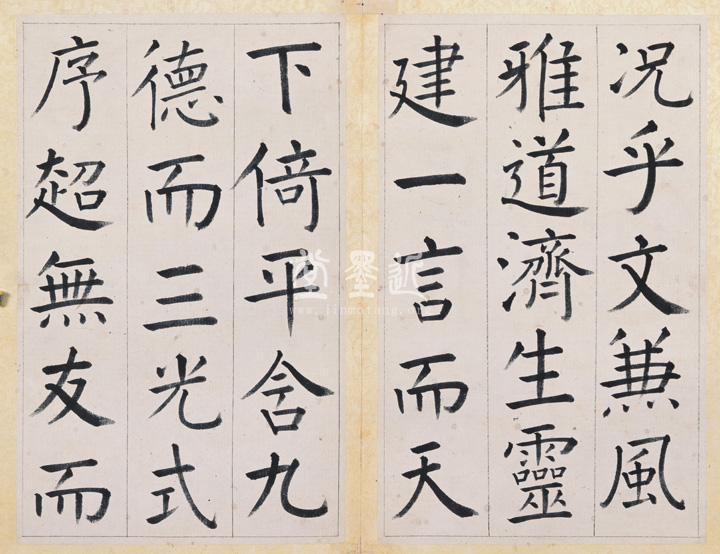 况乎文兼風
雅道濟生靈
建一言而天
下倚平含九
德而三光式
序超無友而
近墨堂
www.jinmotang.org